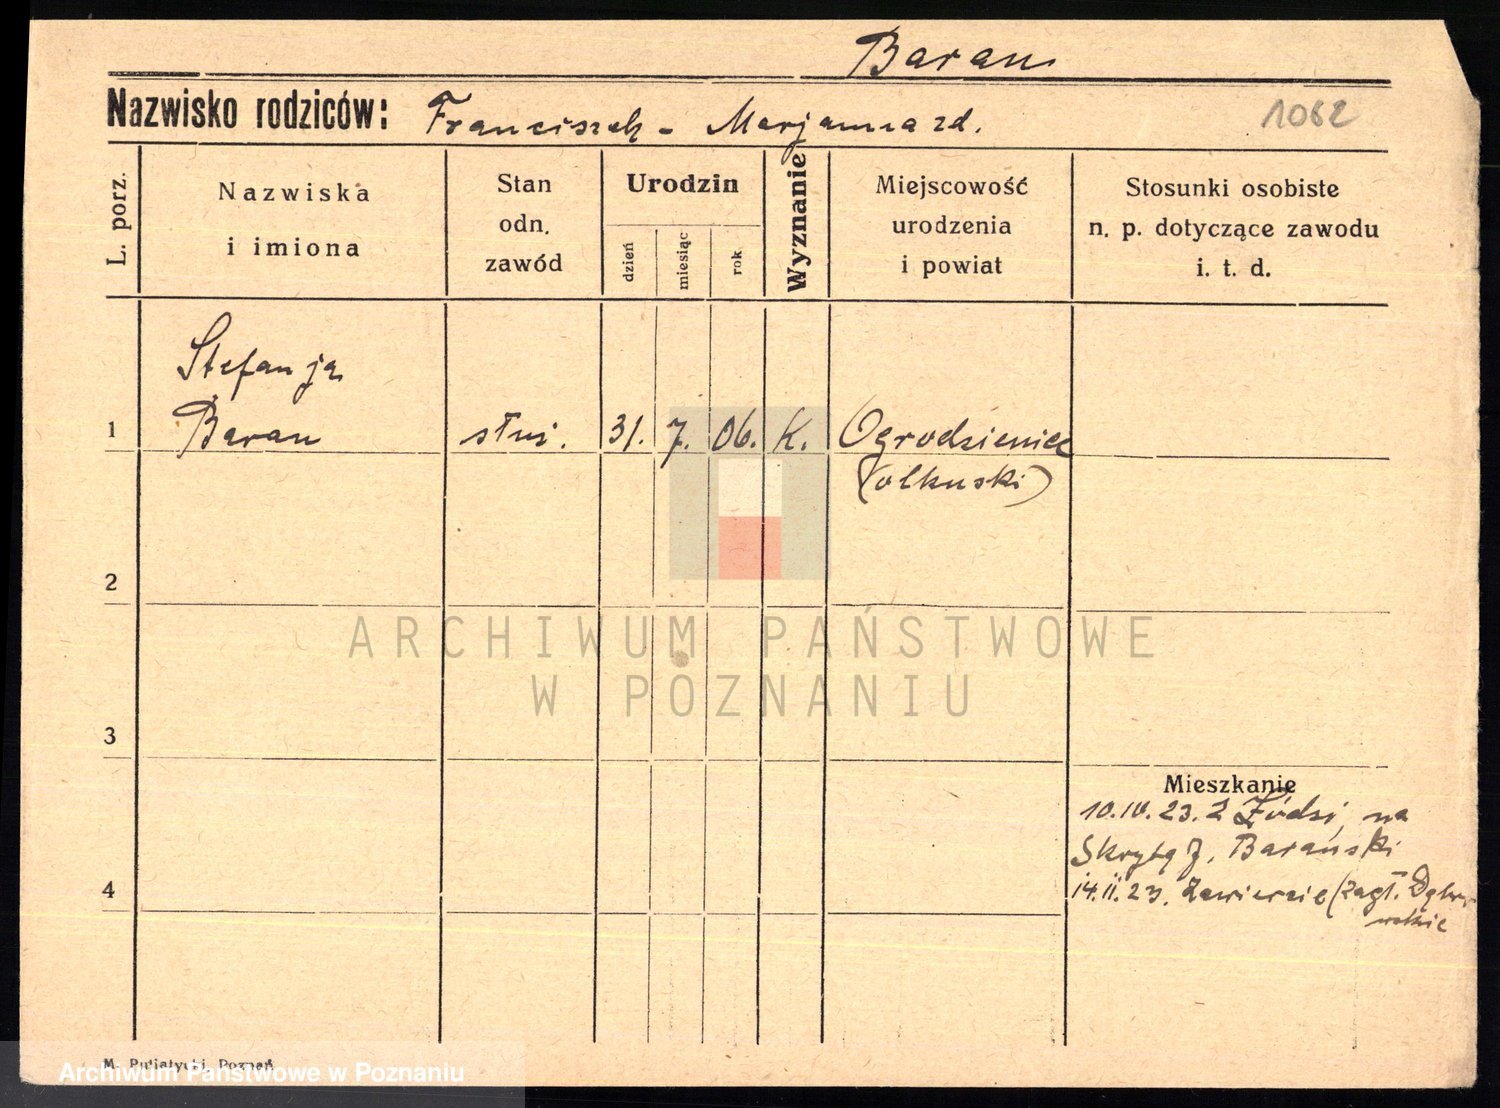 Baran
Nazwisko rodziców: Franciszek - Marjanna zd.
1062
L. porz.
Nazwiska
i imiona
Stan
odn.
zawód
Urodzin
dzień
miesiąc
rok
Wyznanie
Miejscowość
urodzenia
i powiat
Stosunki osobiste
n. p. dotyczące zawodu
i. t. d.
Stefanja
1 Baran służ. 31. 7. 06. K. Ogrodzieniec
(olkuski)
2
ARCHIWUM PAŃSTWOWE
W POZNANIU
3
Mieszkanie
10.IV.23. z Łodzi, na
Skrytą 7, Barański
4
14.II.23. Zawiercie (Zagł. Dąbro-
wskie
M. Putiatycki, Poznań
Archiwum Państwowe w Poznaniu